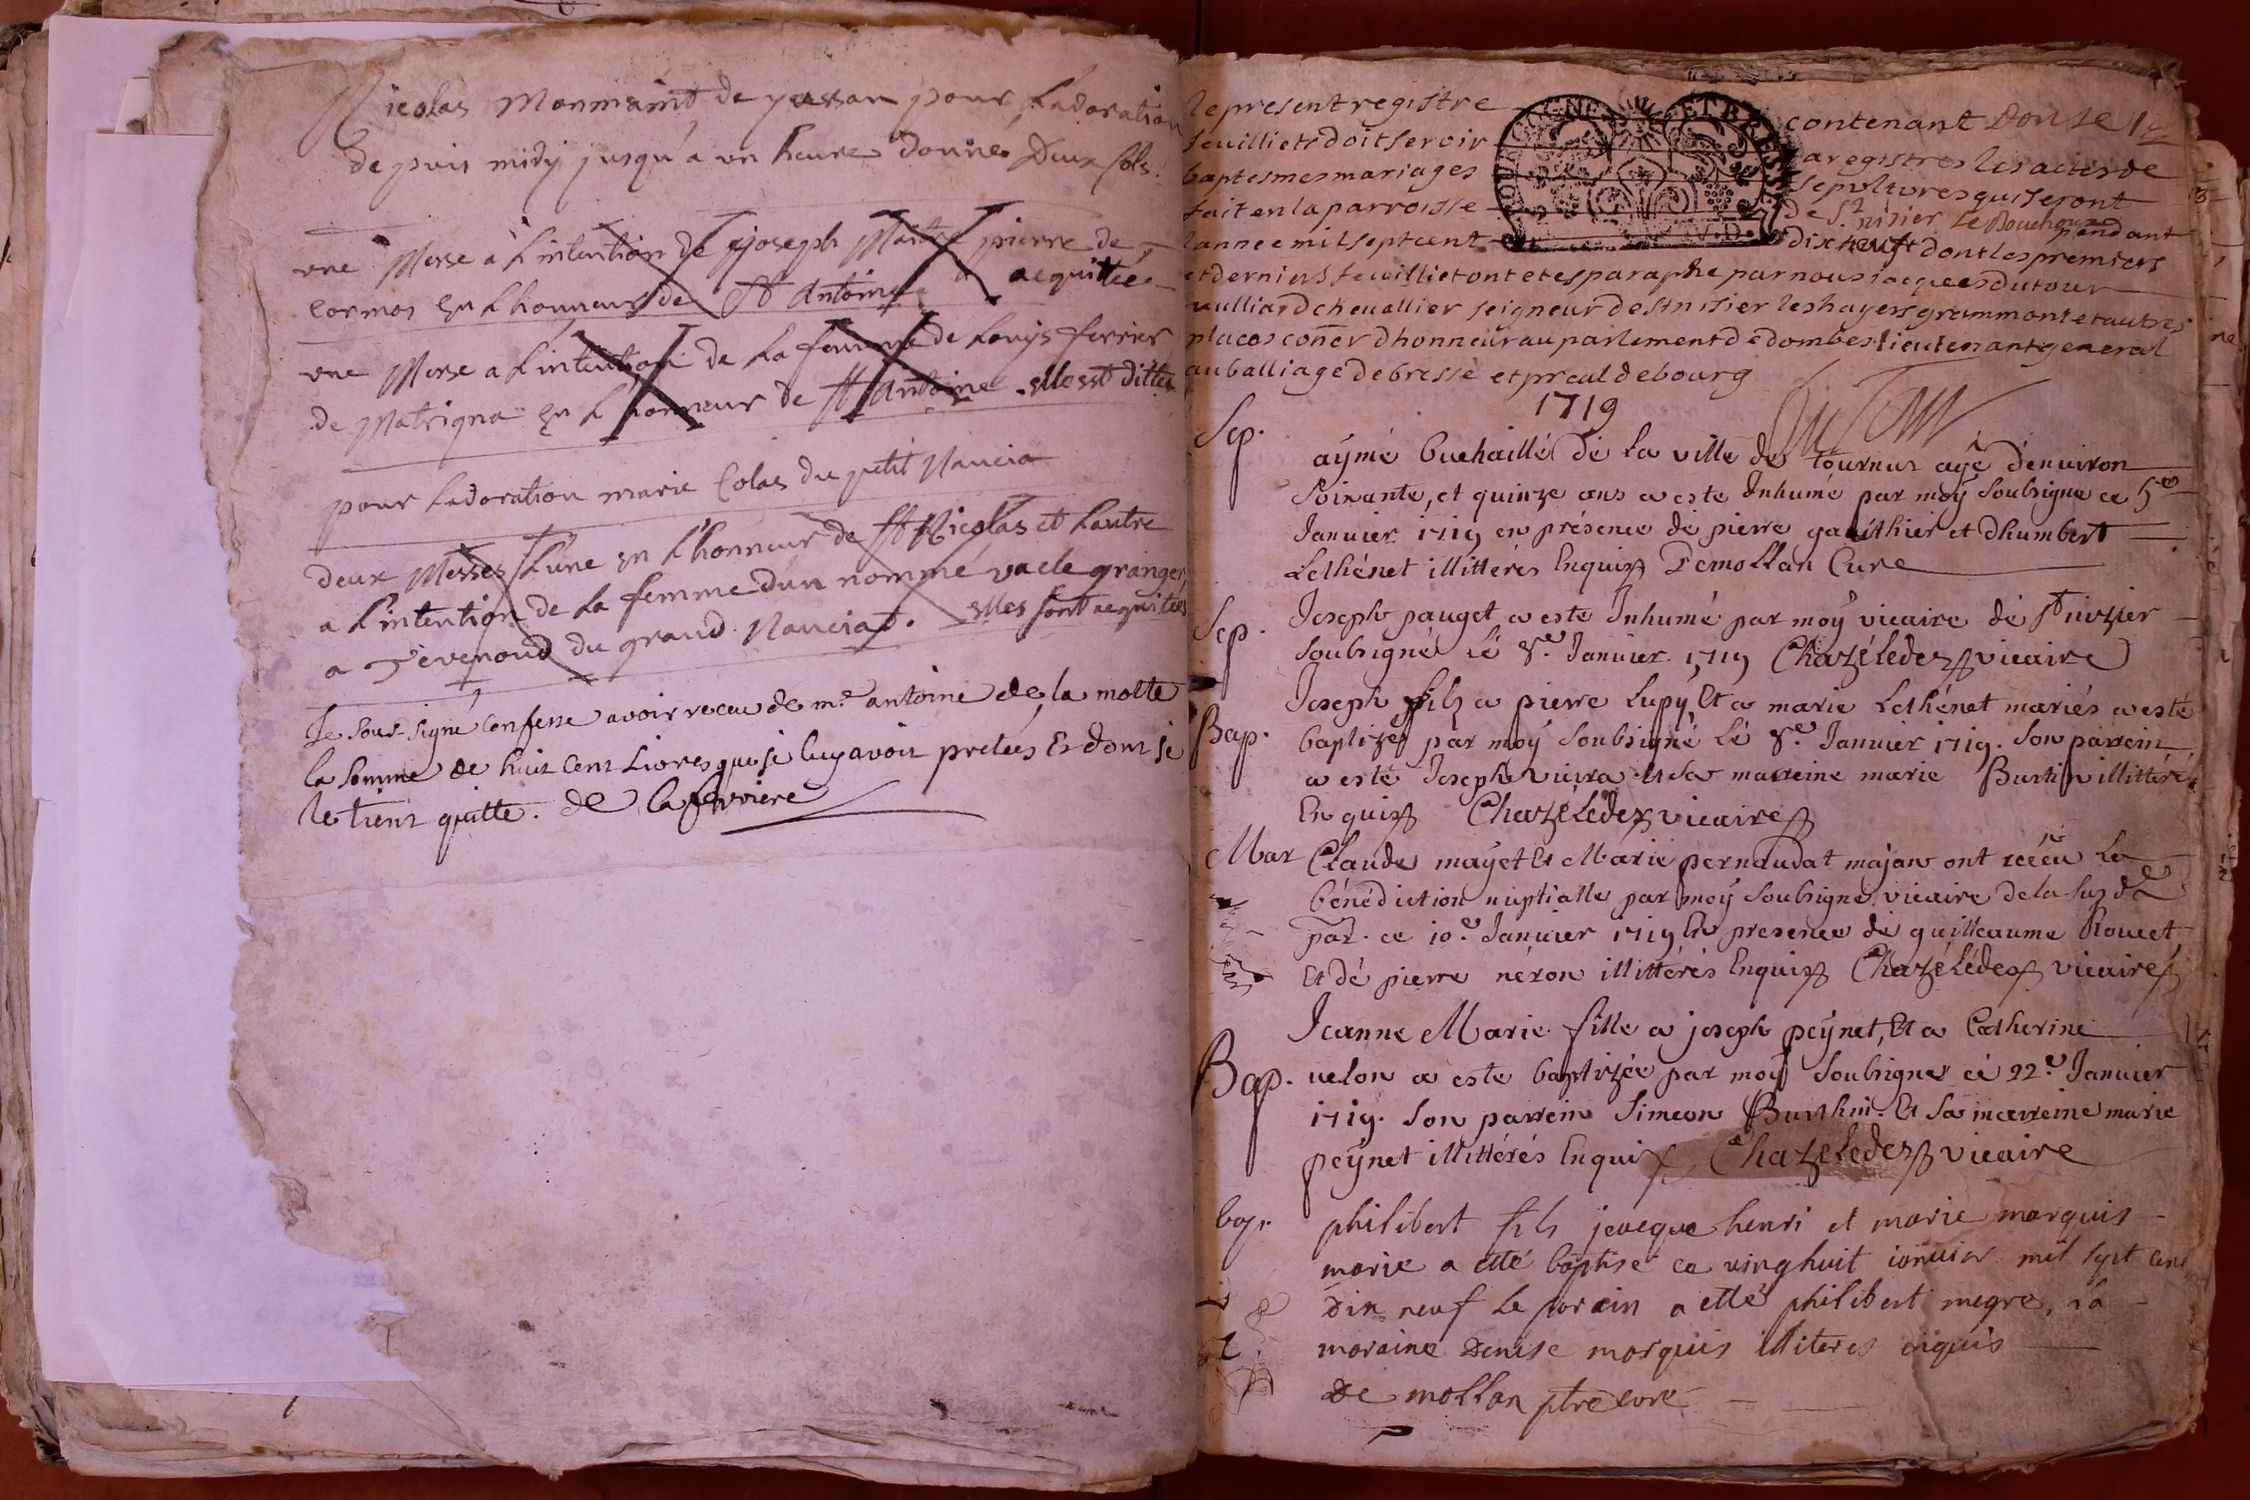 Nicolas Monmaint de passan pour Ladoration
de puis midy jusqu'a un heure donné Deux sols.
une Messe a L'intention de joseph Maitre pierre de
cormos en L'honneur de St Antoine acquittée
une Messe a L'intention de La femme de Louys ferrier
de Matrigna en L'honneur de St Antoine elle est ditte
pour Ladoration marie Colas du petit Nancia
deux Messes L'une en L'honneur de St Nicolas et Lautre
a L'intention de La femme d'un nommé vacle granger
a Tevenoud du grand Nanciat. elles sont acquitées
Je sous-signé confesse avoir receu de mr antoine de la motte
la somme de huit cent Livres que je luy avois pretées Et dont je
le tiens quitte. de laferriere
le present registre contenant Douse
feuilliets doit servir a registrer les actes de
baptesmes mariages sepultures qui seront
fait en la parroisse de St nisier Le Bouchoux pendant
lannee mil sept cent dix neuf dont les premiers
et derniers feuilliet ont etes paraphe par nous jacques dutour
vulliard chevallier seigneur de st nisier les hayes grammont et autres
places coner dhonneur au parlement de dombes lieutenant general
au balliage de bresse et preal de bourg
DuTour
1719
Sep.
aymé buchaillé de La ville de tournus agé denuiron
soixante, et quinze ans a este Inhumé par moy soubsigné ce 5e
Januier 1719 en présence de pierre gauthier et dhumbert
Lethénet illittérés Enquis Demollan Cure
Sep.
Joseph pauget a este Inhumé par moy vicaire de st nizier
soubsigné le 8e Januier 1719 Chazeledes vicaire
Bap.
Joseph fils a pierre Lupy Et a marie Lethénet mariés a esté
baptizés par moy soubsigné le 8e Januier 1719. Son parrein
a esté Joseph vuira Et sa marreine marie Burtin illittérés
Enquis Chazeledes vicaire
Mar
Claude mayet Et Marie pernaudat majan ont recéu La
bénédiction nuptialle par moy soubsigné vicaire de la susde
par. ce 10e Januier 1719 En presence de guilleaume Rouet
Et de pierre néron illittérés Enquis Chazeledes vicaire
Bap.
Jeanne Marie fille a joseph peynet, Et a Catherine
uelon a este baptizée par moy soubsigné cé 22e Januier
1719. Son parrein Simeon Burthin. Et Sa marreine marie
peynet illittérés Enquis Chazeledes vicaire
bap.
philibert fils jacque henri et marie marquis
marie a etté baptisé ce vinghuit ianuier mil sept cent
Dix neuf Le parain a etté philibert megre, La
maraine Denise marquis illiteres enquis
De mollan ptre cure